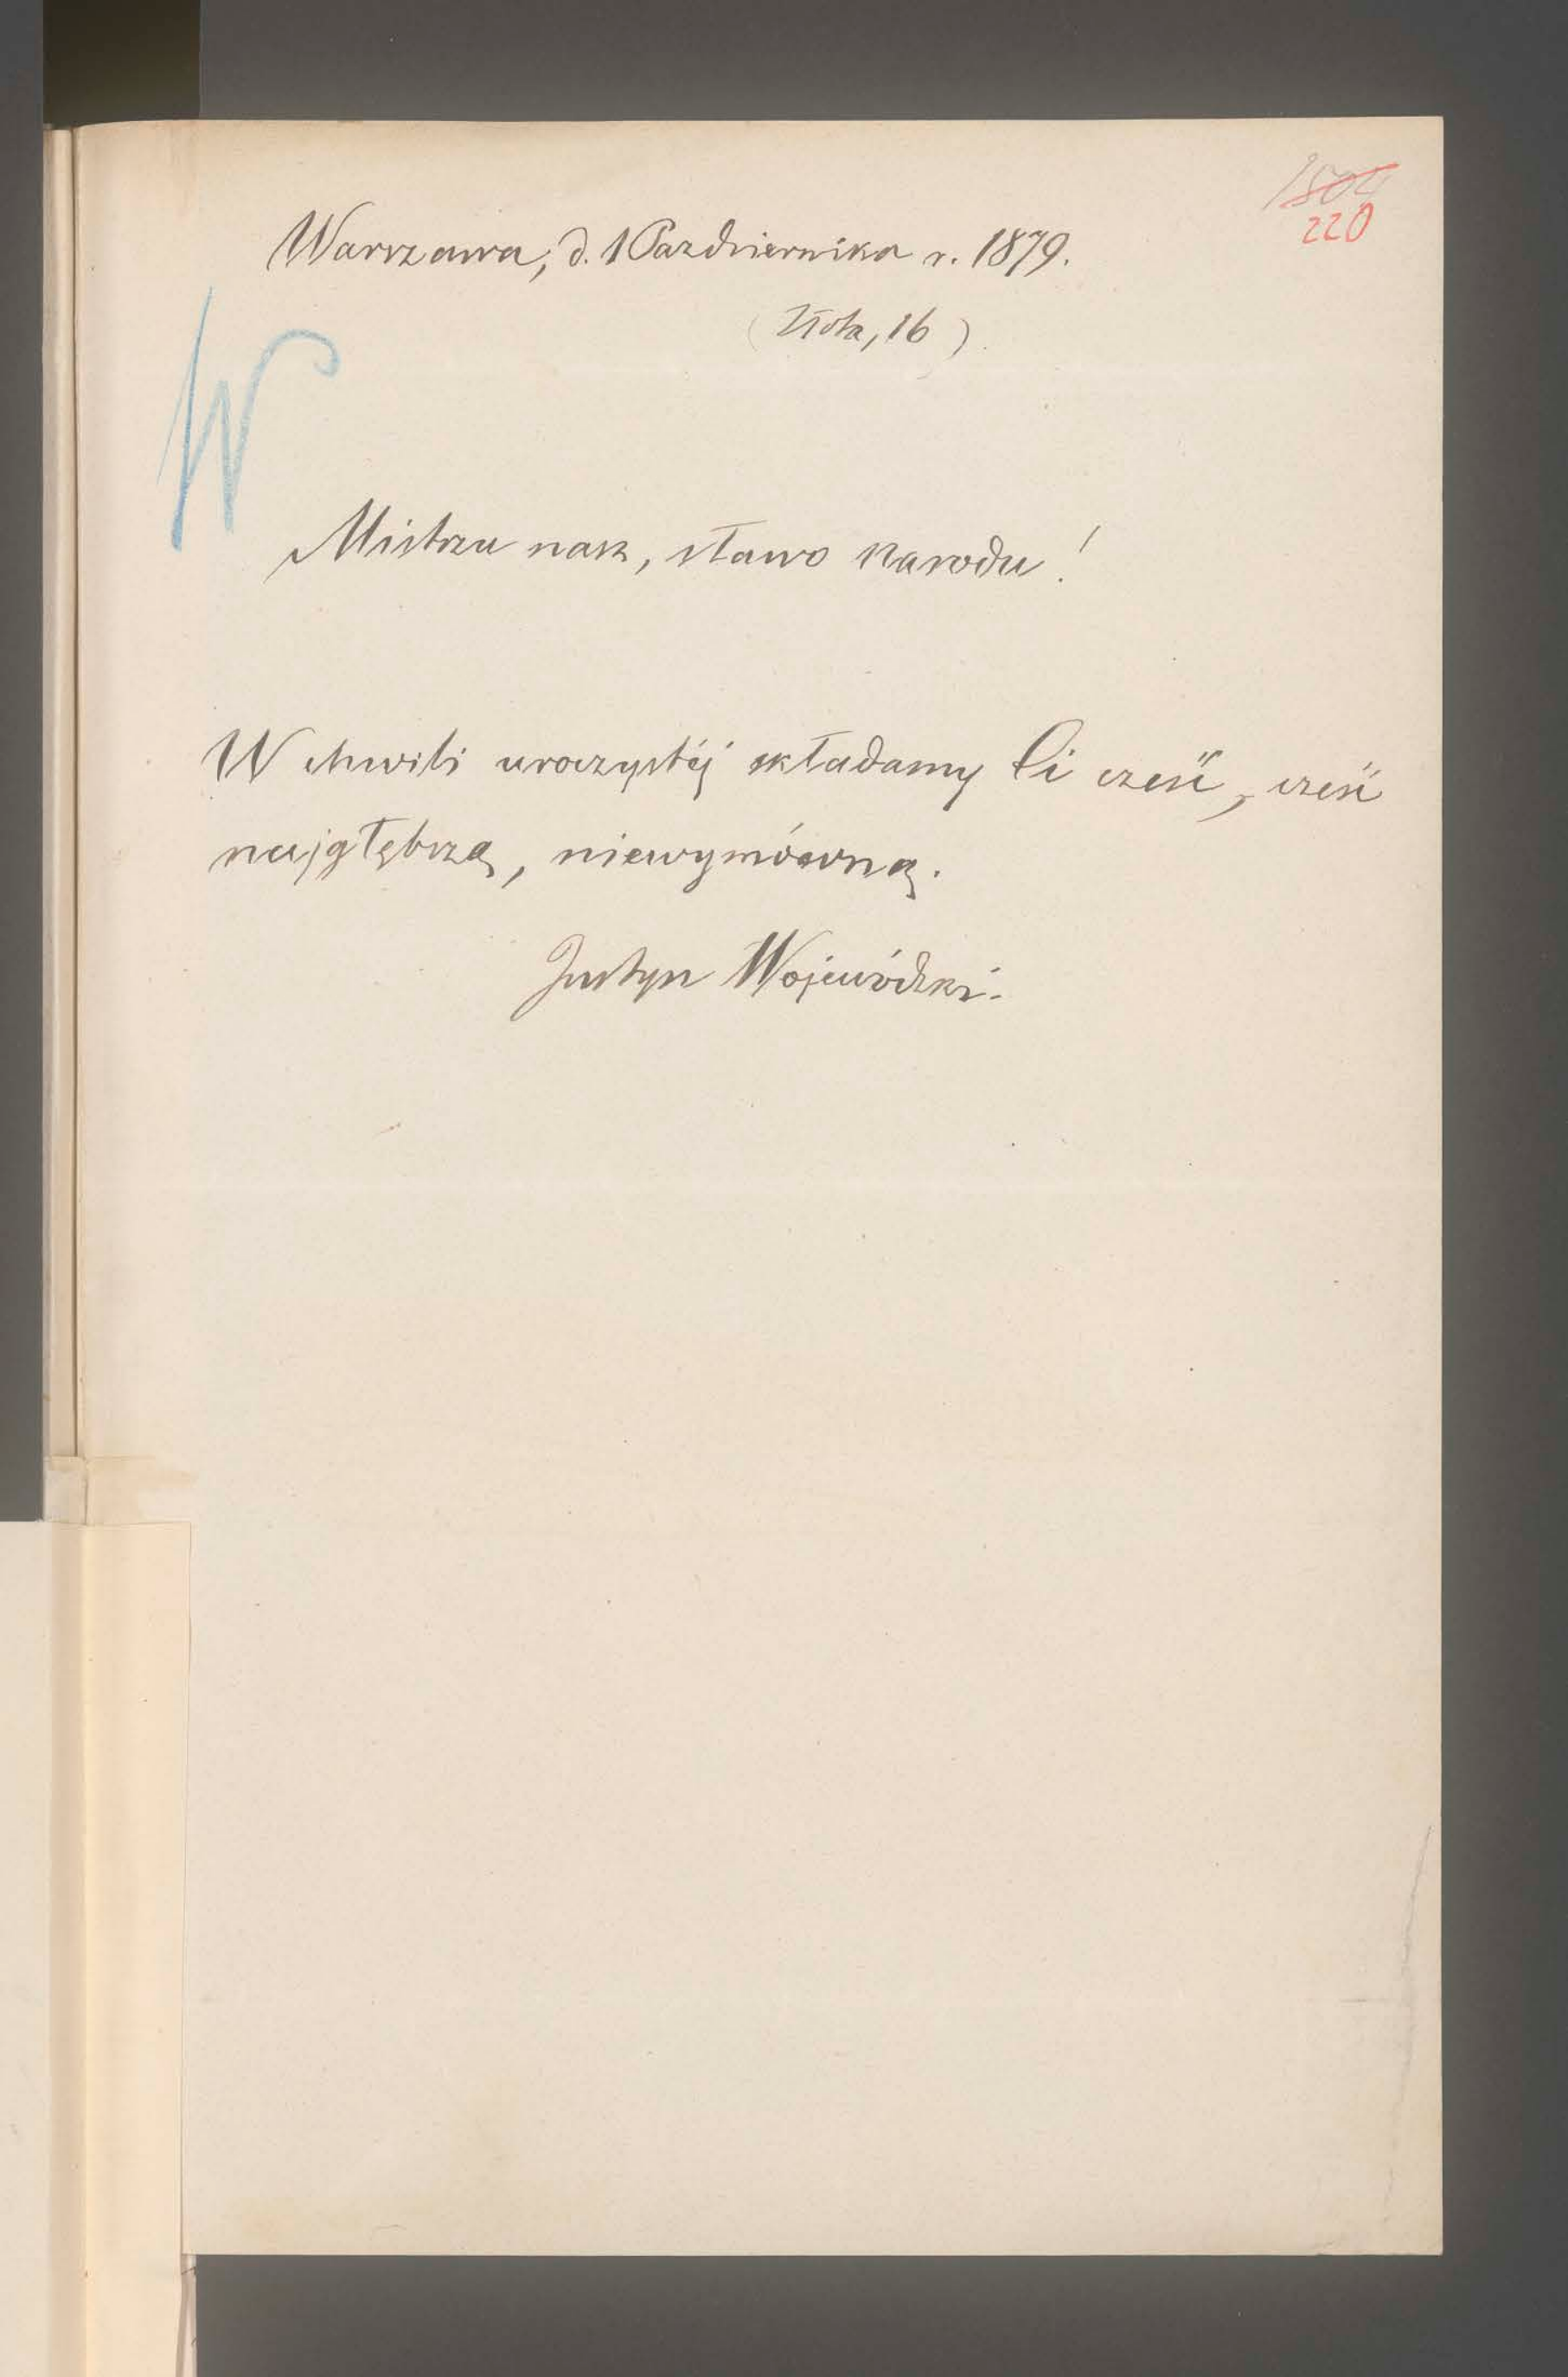 1504
220
Warszawa, d. 1 Października r. 1879.
(Złota, 16).
W
Mistrzu nasz, sławo Narodu!
W chwili uroczystéj składamy Ci cześć, cześć
najgłębszą, niewymówną.
Justyn Wojewódzki.